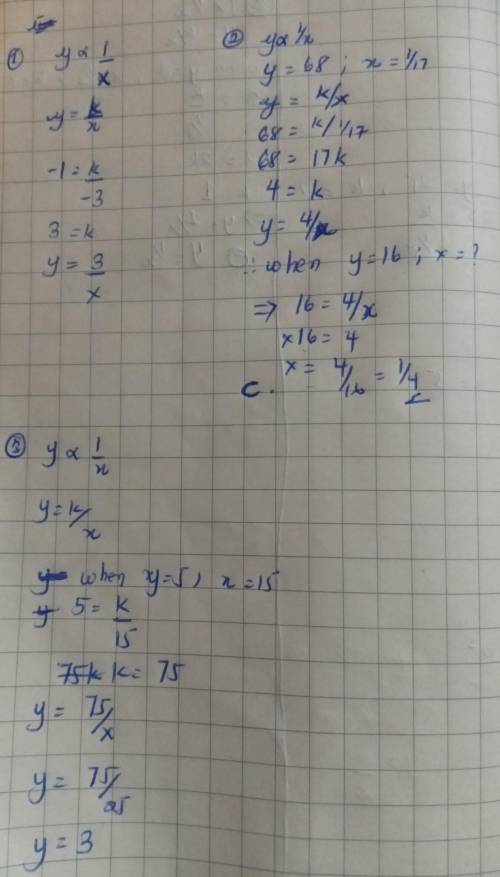 ① y ∝ 1/x
y = k/x
-1 = k/-3
3 = k
y = 3/x
② y ∝ 1/x
y = 68 ; x = 1/17
y = k/x
68 = k/1/17
68 = 17k
4 = k
y = 4/x
∴ when y=16 ; x = ?
⇒ 16 = 4/x
x16 = 4
x = 4/16 = 1/4
C.
③ y ∝ 1/x
y = k/x
when y=5, x=15
5 = k/15
k = 75
y = 75/x
y = 75/25
y = 3